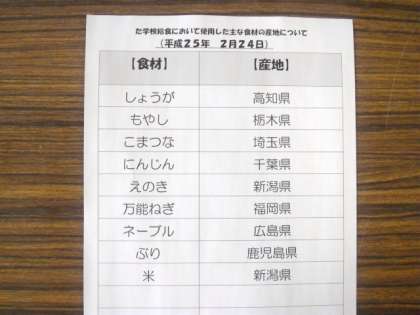 た学校給食において使用した主な食材の産地について
(平成25年 2月24日)
【食材】 【産地】
しょうが 高知県
もやし 栃木県
こまつな 埼玉県
にんじん 千葉県
えのき 新潟県
万能ねぎ 福岡県
ネーブル 広島県
ぶり 鹿児島県
米 新潟県